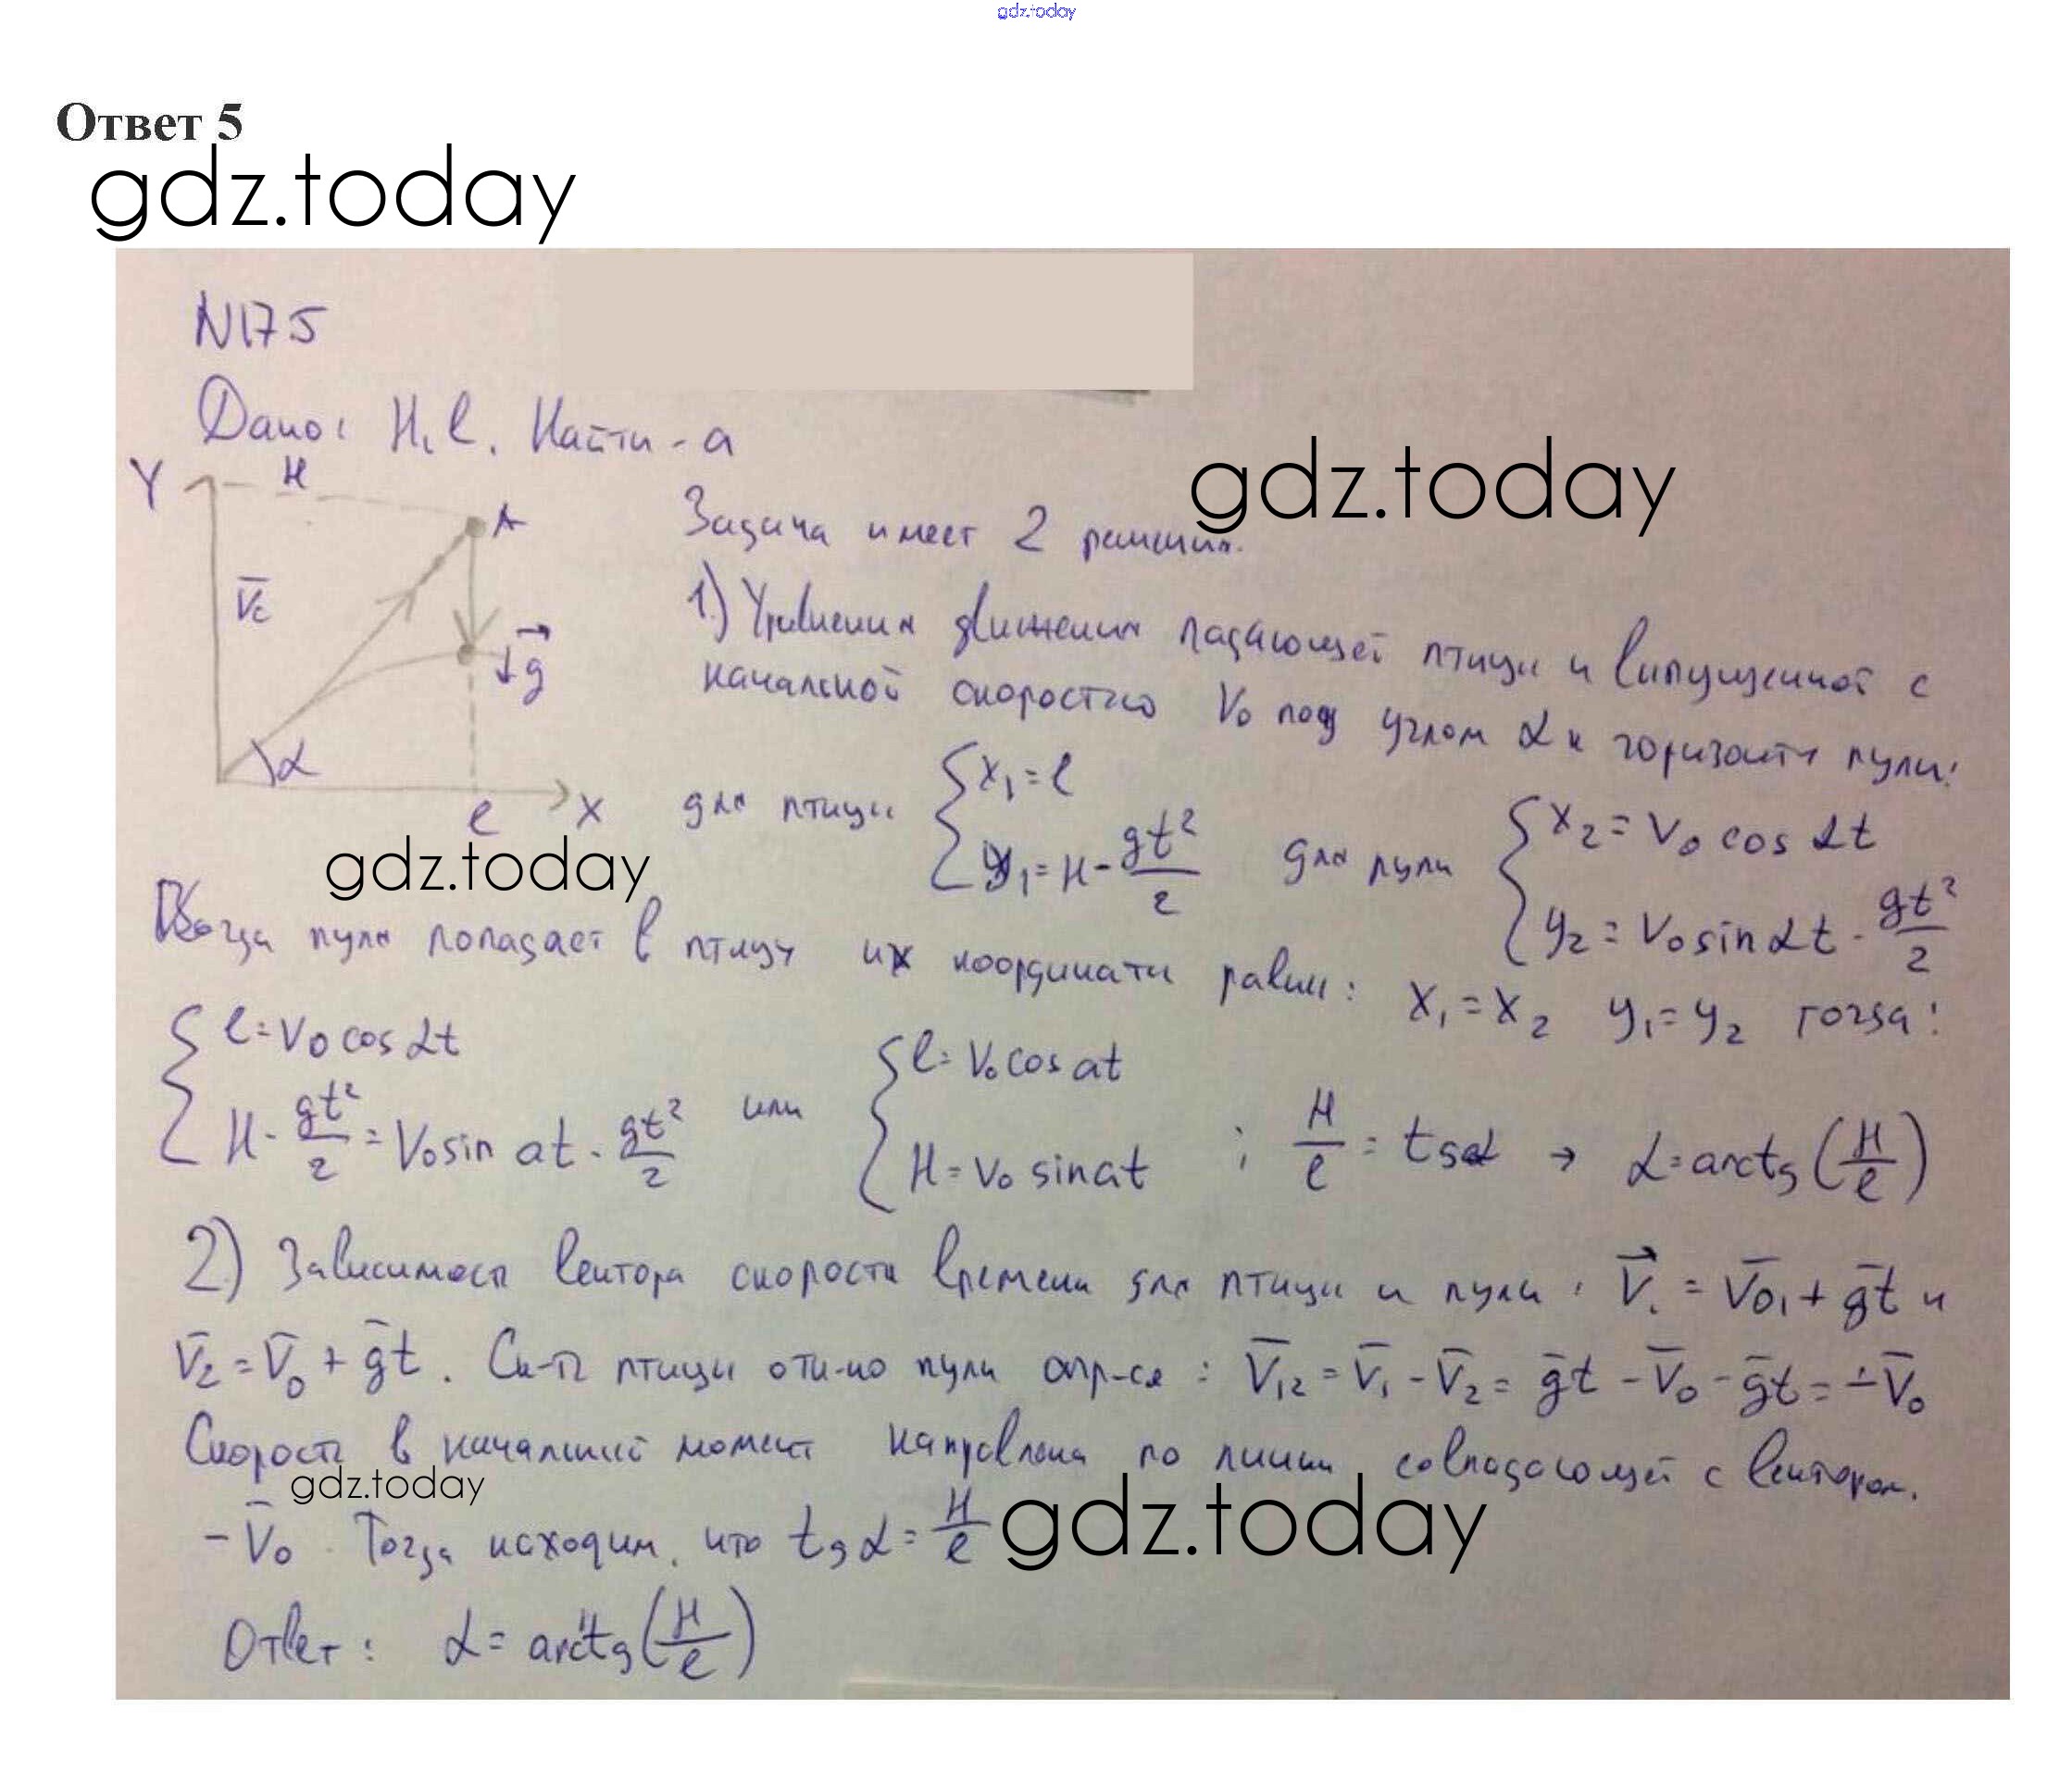 gdz.today
Ответ 5
gdz.today
N17 5
Дано: H, l. Найти - a
Y H A
gdz.today
Задача имеет 2 решения.
V̄c
1) Уравнения движения падающей птицы и выпущенной с
g⃗
начальной скоростью V₀ под углом α к горизонту пули:
α
l X
для птицы { x₁ = l
y₁ = H - gt²/2
для пули { x₂ = V₀ cos αt
y₂ = V₀ sin αt - gt²/2
gdz.today
Когда пуля попадает в птицу их координаты равны: x₁ = x₂ y₁ = y₂ тогда:
{ l = V₀ cos αt
H - gt²/2 = V₀ sin at - gt²/2
или { l = V₀ cos at
H = V₀ sin at
; H/l = tg α → α = arctg (H/l)
2) Зависимость вектора скорости времени для птицы и пули: V⃗₁ = V̄₀₁ + ḡt и
V̄₂ = V̄₀ + ḡt. Ск-ть птицы отн-но пули опр-ся: V̄₁₂ = V̄₁ - V̄₂ = ḡt - V̄₀ - ḡt = - V̄₀
Скорость в начальный момент направлена по линии совпадающей с вектором.
gdz.today
- V̄₀. Тогда находим, что tg α = H/l
gdz.today
Ответ: α = arctg (H/l)